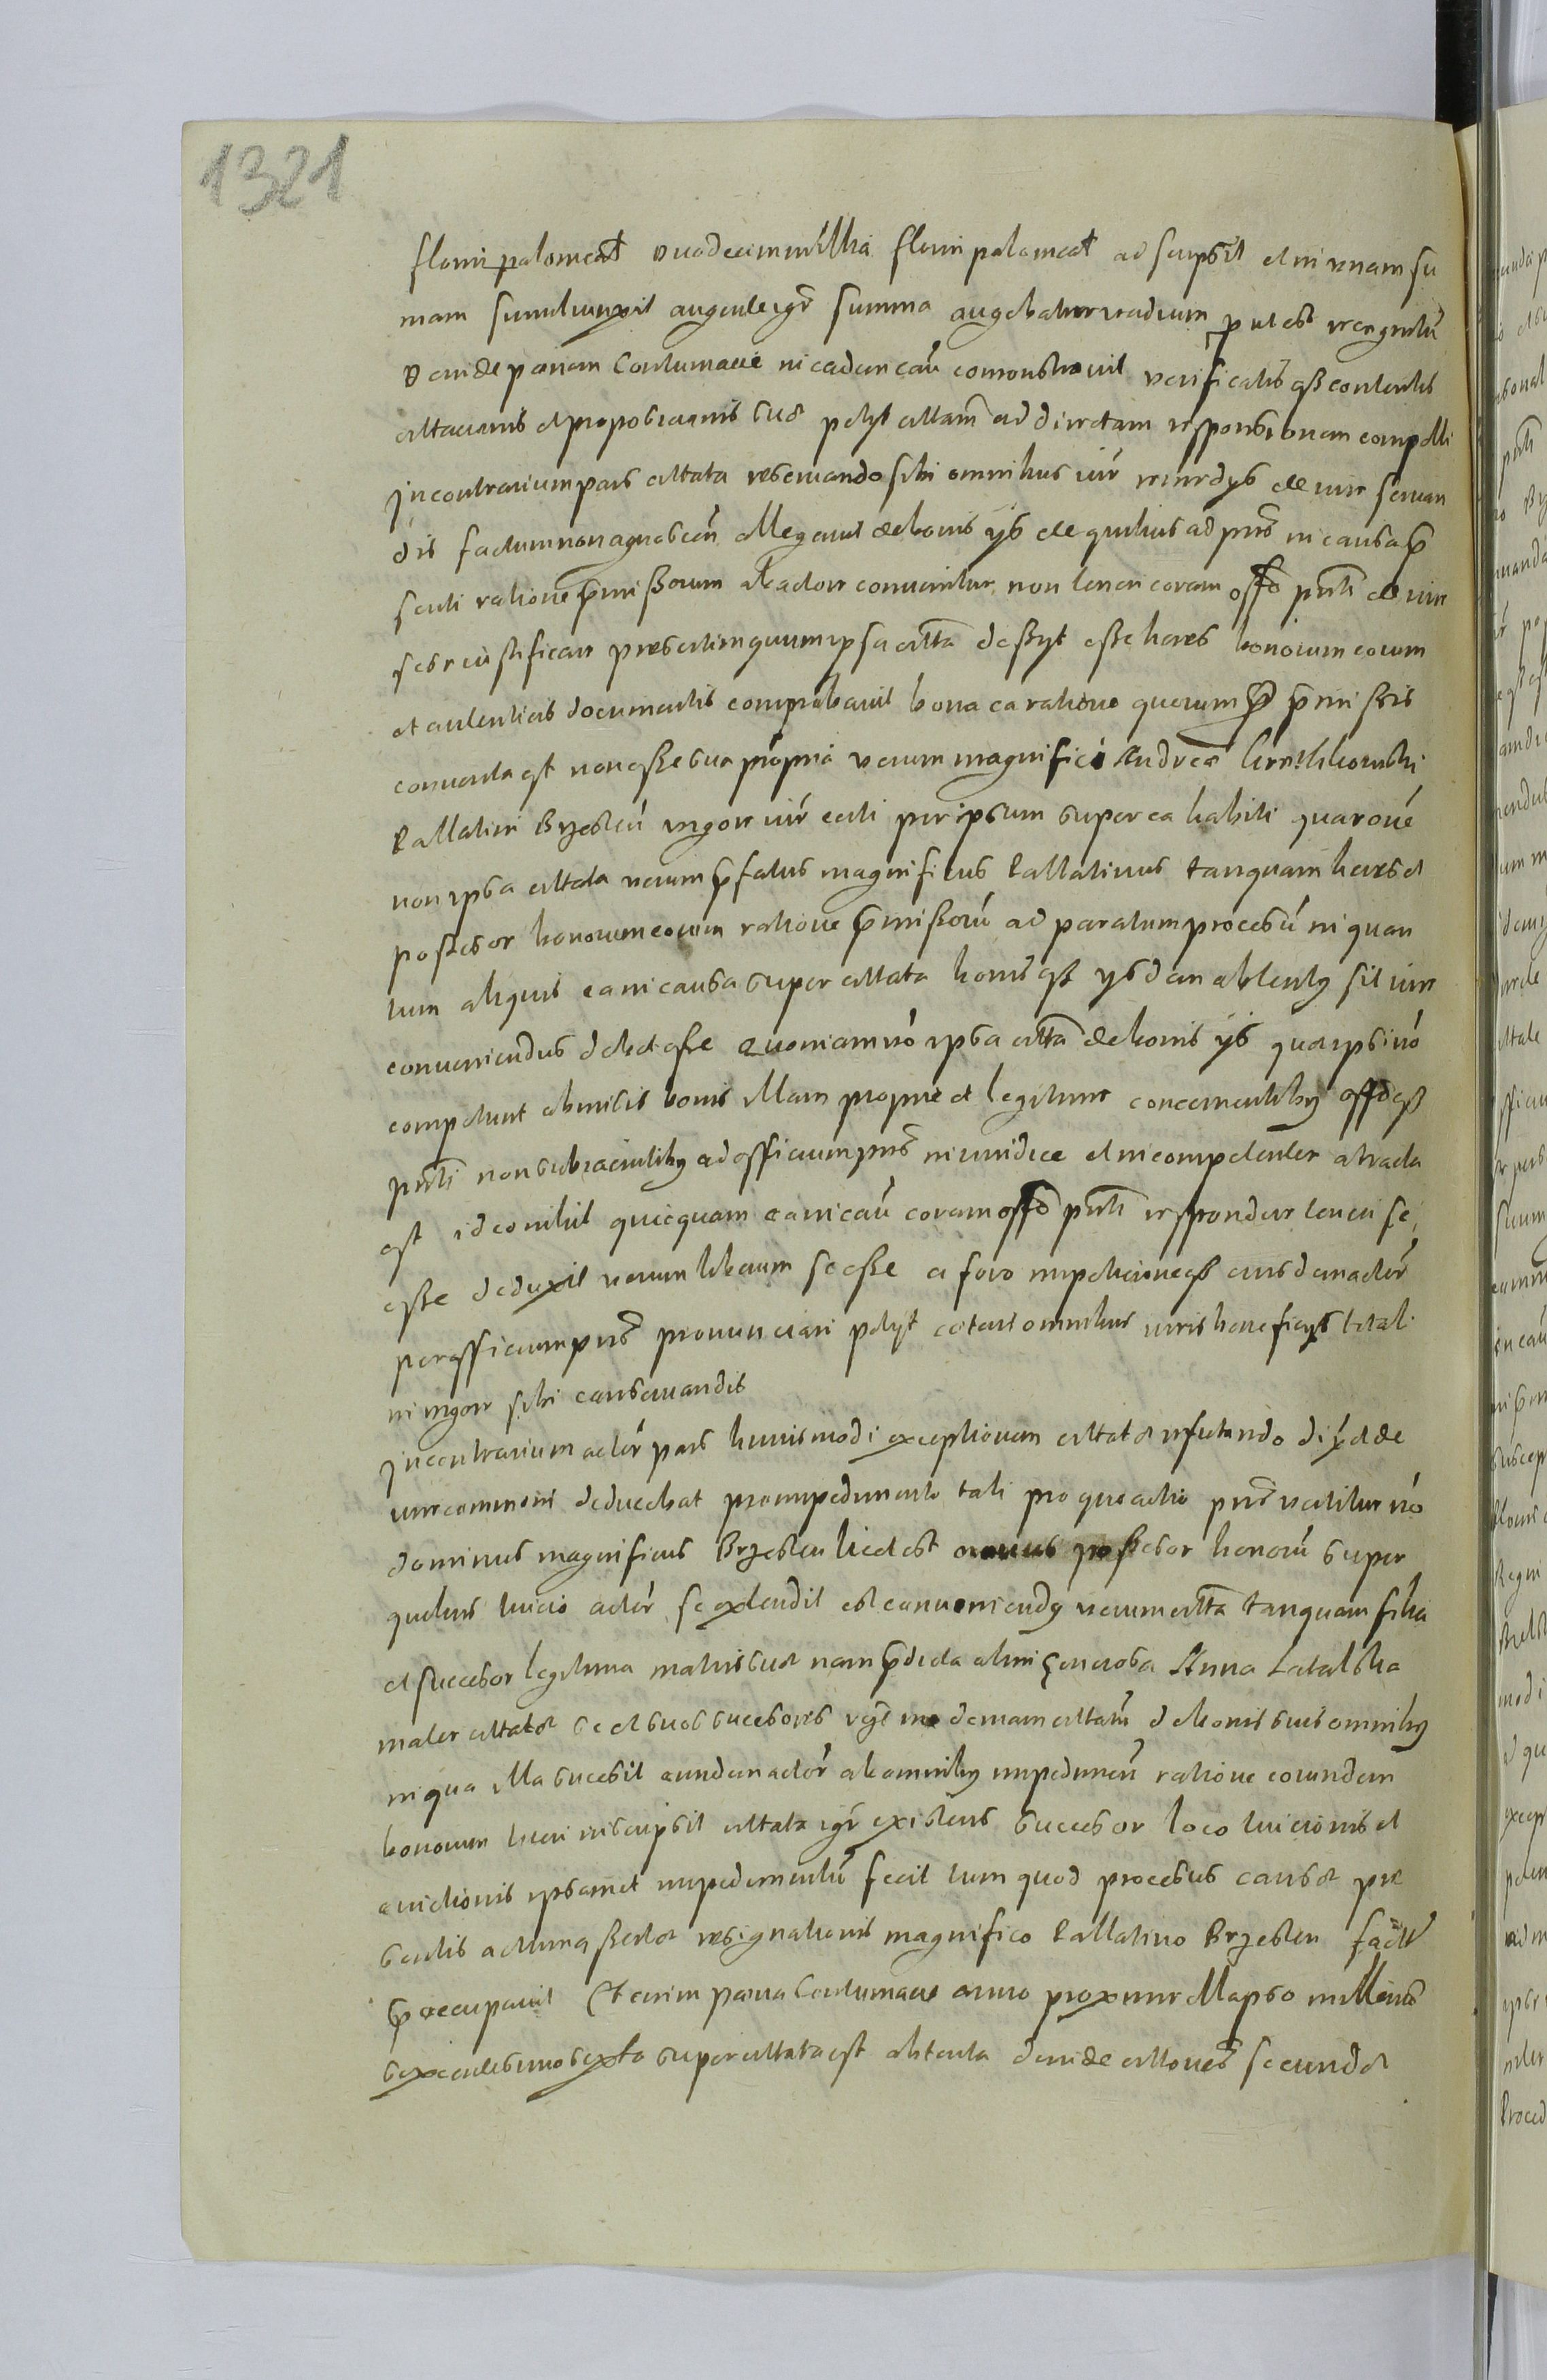 1321
floren polonical duodecim millia floren polonical adscripsit et in unam su
mam simul iunxit augente igr summa augebatur vadium put est recognitu
deinde poenam Contumacie in eadem cau comonstravit verificatis qz contentis
citacionis et proposicionis sue petyt citatam ad directam responsionem compelli
In contrarium pars citata reservando sibi omnibus iur remedys de iure servan
dis factum non agnoscen allegavit de bonis ys de quibus ad pns in causa p
senti ratione pmissorum ab actore convenitur non teneri coram offo pnti de iure
se s iustificare presertim quum ipsa citta desyt esse heres bonorum eorum
et autenticis documentis comprobavit bona ea ratione quorum pmissis
conventa est non esse sua propria verum magnifici Andree
Pallatini Brzesten vigore iur certi per ipsum super ea habiti quare
non ipsa citata verum pfatus magnificus Pallatinus tanquam heres et
possesor bonorum eorum ratione pmissoru ad paratum procesu in quan
tum aliquis ea in causa super citata bonis qz ysdem obtentus sit iure
conveniendus debet esse Quoniam vo ipsa citta de bonis ys que ipsi no
competunt ab nullis bonis illam proprie et legitime concernentibus offo qz
pnti non subiacentibus ad officium pns iniuridice et incompetenter attracta
est ideo nihil quicquam ea in cau coram offo pnti respondere teneri se
esse deduxit verum liberum se esse a foro impeticione qz eiusdem actor
per officium pns pronunciari petyt ceteris omnibus iuris beneficys total
in vigore sibi conservandis
In contrarium actor pars huiusmodi exceptionem citate refutando dixit de
iure communi deducebat pro impedimento tali pro quo actio pns vertitur no
dominus magnificus Brzesten licet est novus possesor bonoru super
quibus tuicio actor se extendit est conveniendus verum citta tanquam filia
et succesor legitima matris sue nam pdicta olim generosa Anna Latalska
mater citate se et suos succesores vigt me demam cittam de bonis suis omnibus
in qua illa succesit eundem actor ab omnibus impedimen ratione eorundem
bonorum tueri inscripsit citata igr existens succesor loco tuicionis et
evictionis ipsamet impedimentu fecit tum quod procesus cause pre
sentis actum assertae resignationis magnifico Pallatino Brzesten factu
poccupavit Etenim poena Contumacie anno proxime ellapso millesimo
sexcentesimo sexto super citata est obtenta deinde citones secunde